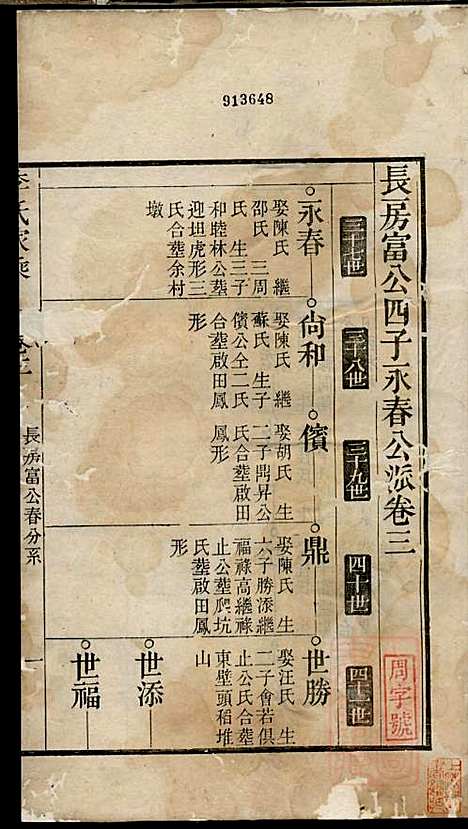 913648
長房富公四子永春公派卷三
三十七世
三十八世
三十九世
四十世
四十一世
永春
娶陳氏繼
邵氏三周
氏生三子
和睦林公塟
迎坦虎形三
氏合塟余村
墩
尙和
娶陳氏繼
蘇氏生子
儐公仝二氏
合塟啟田鳳
形
儐
娶胡氏生
二子鼎昇公
氏合塟啟田
鳳形
鼎
娶陳氏生
六子勝添繼
福祿高繼祿
止公塟爬坑
氏塟啟田鳳
形
世勝
娶汪氏生
二子會若俱
止公氏合塟
東壁頭稻堆
山
世添
世福
李氏家乘
長房富公春分系
一
周字號